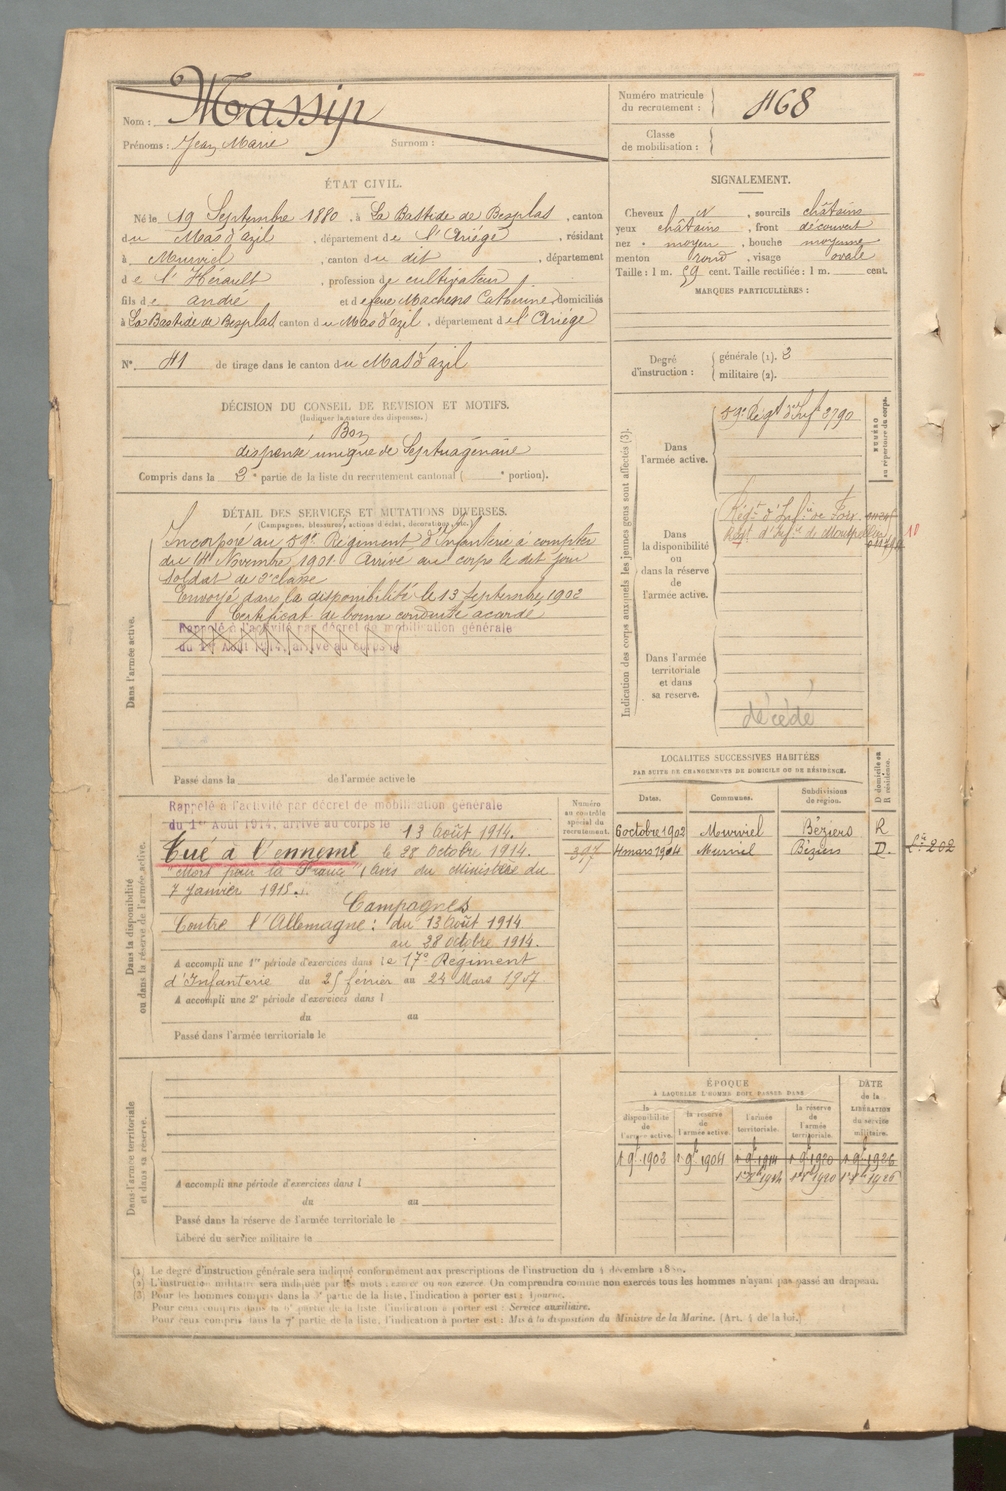 Nom : Massip
Prénoms : Jean Marie Surnom :
Numéro matricule du recrutement : 468
Classe de mobilisation :
ÉTAT CIVIL.
Né le 19 Septembre 1880, à La Bastide de Besplas, canton
du Mas d'azil, département de l'Ariége, résidant
à Murviel, canton du dit, département
de l'Hérault, profession de cultivateur
fils de andré et de feue Machens Catherine, domiciliés
à La Bastide de Besplas, canton du Mas d'azil, département de l'Ariége
N° 41 de tirage dans le canton du Mas d'azil
SIGNALEMENT.
Cheveux N, sourcils châtains
yeux châtains, front découvert
nez moyen, bouche moyenne
menton rond, visage ovale
Taille : 1 m. 59 cent. Taille rectifiée : 1 m. cent.
MARQUES PARTICULIÈRES :
Degré d'instruction : générale (1). 3
militaire (2).
DÉCISION DU CONSEIL DE REVISION ET MOTIFS.
(Indiquer la nature des dispenses.)
Bon
dispensé unique de Septuagénaire
Compris dans la 2e partie de la liste du recrutement cantonal ( e portion).
DÉTAIL DES SERVICES ET MUTATIONS DIVERSES.
(Campagnes, blessures, actions d'éclat, décorations, etc.)
Dans l'armée active.
Incorporé au 59e Régiment d'Infanterie à compter
du 14 Novembre 1901. Arrivé au corps le dit jour
soldat de 2e classe
Envoyé dans la disponibilité le 13 Septembre 1902
Certificat de bonne conduite acordé
Rappelé à l'activité par décret de mobilisation générale
du 1er Août 1914, arrivé au corps le
Passé dans la de l'armée active le
Indication des corps auxquels les jeunes gens sont affectés (3).
NUMÉRO au répertoire du corps.
Dans l'armée active.
59e Régt d'Inft 3790
Dans la disponibilité ou dans la réserve de l'armée active.
Régt d'Infie de Foix
Régt d'Infie de Montpellier
10
Dans l'armée territoriale et dans sa reserve.
décédé
Dans la disponibilité ou dans la réserve de l'armée active.
Numéro au contrôle spécial du recrutement.
397
Rappelé à l'activité par décret de mobilisation générale
du 1er Août 1914, arrivé au corps le 13 Août 1914.
Tué à l'ennemi le 28 Octobre 1914.
"Mort pour la France", (avis du Ministère du
7 janvier 1915.
Campagnes
Contre l'Allemagne : du 13 Août 1914
au 28 Octobre 1914.
A accompli une 1re période d'exercices dans le 17e Régiment
d'Infanterie du 25 février au 24 Mars 1907
A accompli une 2e période d'exercices dans l
du au
Passé dans l'armée territoriale le
LOCALITÉS SUCCESSIVES HABITÉES
PAR SUITE DE CHANGEMENTS DE DOMICILE OU DE RÉSIDENCE.
Dates. Communes. Subdivisions de région. D domicile ou R résidence.
6 octobre 1902 Murviel Béziers R
4 mars 1904 Murviel Béziers D.
202
Dans l'armée territoriale et dans sa réserve.
A accompli une période d'exercices dans l
du au
Passé dans la réserve de l'armée territoriale le
Libéré du service militaire le
ÉPOQUE
À LAQUELLE L'HOMME DOIT PASSER DANS
DATE de la LIBÉRATION du service militaire.
la disponibilité de l'armée active. la réserve de l'armée active l'armée territoriale. la réserve de l'armée territoriale.
1 9bre 1903 1 9bre 1904 1 9bre 1914 1 9bre 1920 1 9bre 1926
(1) Le degré d'instruction générale sera indiqué conformément aux prescriptions de l'instruction du 4 décembre
(2) L'instruction militaire sera indiquée par les mots exercé ou non exercé. On comprendra comme non exercés tous les hommes n'ayant pas passé au drapeau.
(3) Pour les hommes compris dans la 5e partie de la liste, l'indication à porter est : Ajourné.
Pour ceux compris dans la 6e partie de la liste l'indication à porter est : Service auxiliaire.
Pour ceux compris dans la 7e partie de la liste, l'indication à porter est : Mis à la disposition du Ministre de la Marine. (Art. 4 de la loi.)